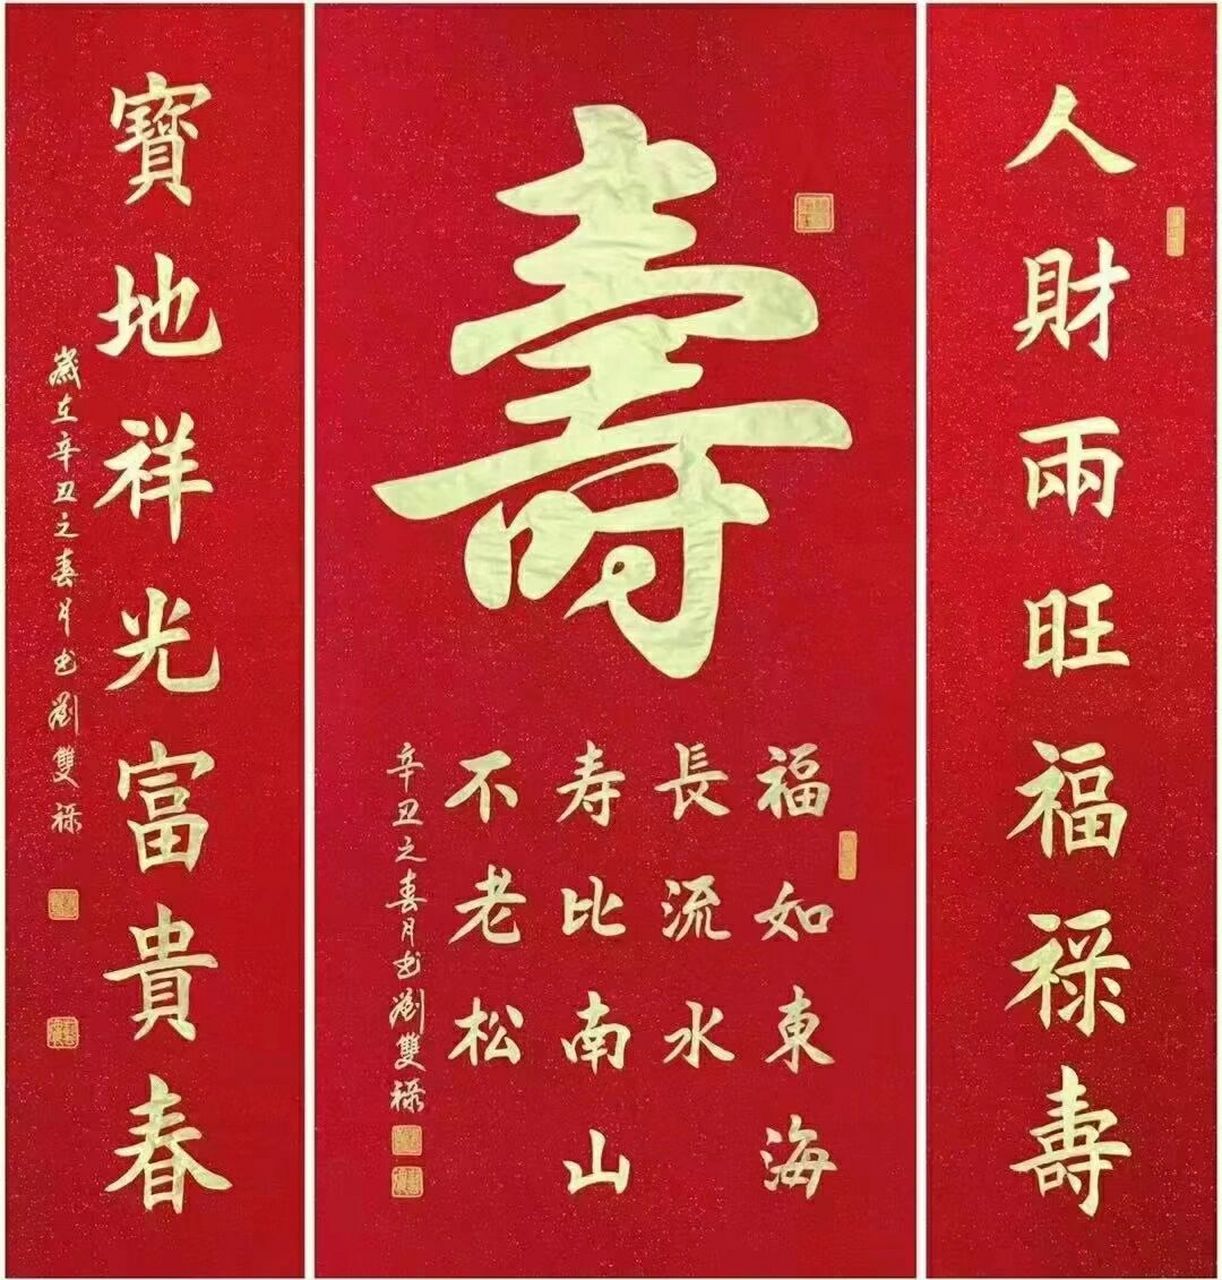 人財兩旺福祿壽
壽
福如東海
長流水
寿比南山
不老松
辛丑之春月书劉雙祿
寶地祥光富貴春
歲在辛丑之春月书劉雙祿